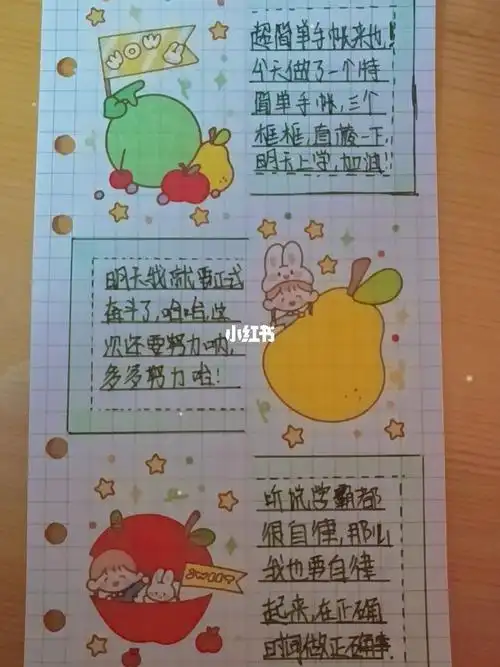 WOW
超简单手帐来也,
今天做了一个特
简单手帐,三个
框框,直接一下
明天上学,加油
明天我就要正式
奋斗了,哈哈,这
次还要努力呐,
多多努力哈!
小红书
听说学霸都
很自律,那么
我也要自律
起来,在正确
时间做正确事